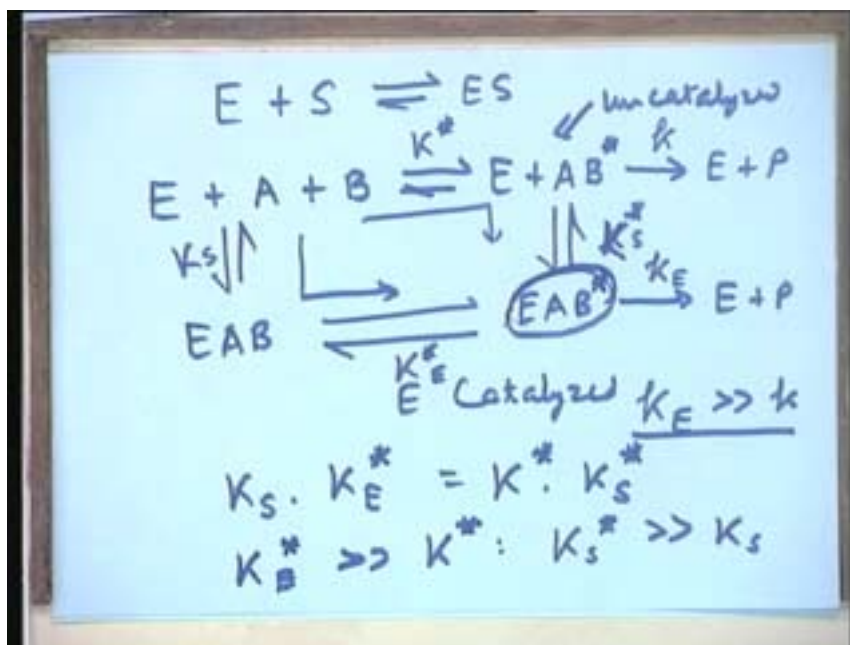 E + S ⇌ ES
uncatalyzed
E + A + B ⇌ K* E + AB* → k E + P
Ks ⇅ ⇅ Ks*
EAB ⇌ EAB* → kE E + P
KE*
E Catalyzed kE >> k
Ks . KE* = K* . Ks*
KE* >> K* : Ks* >> Ks